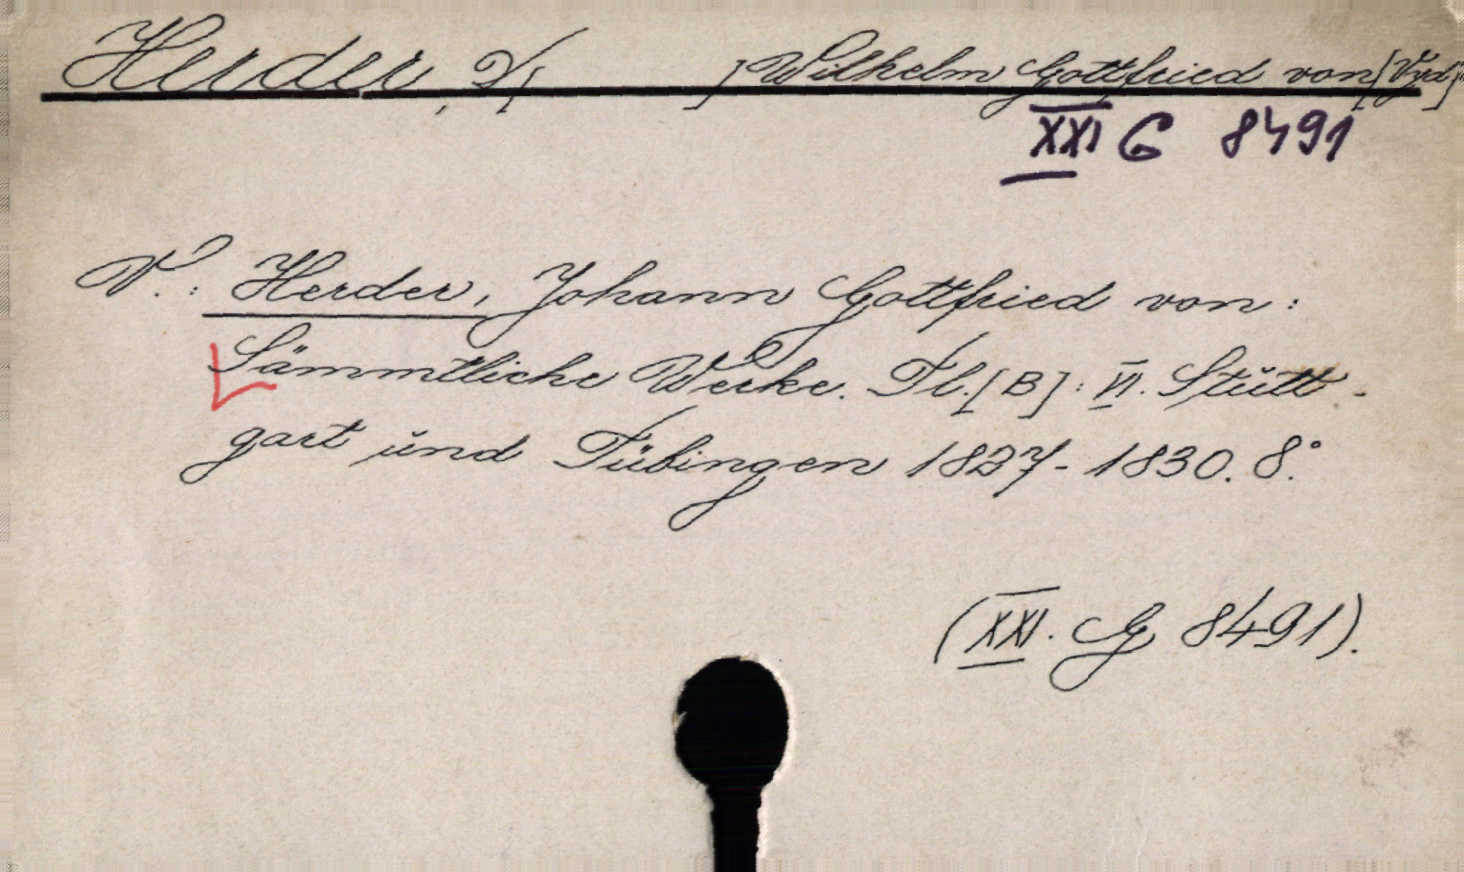 Herder, D[ ] Wilhelm Gottfried von [Vyd]
XXI G 8491
V.: Herder, Johann Gottfried von:
Sämmtliche Werke. Tl. [B]: VI. Stŭtt-
gart ŭnd Tübingen 1827-1830. 8.°
(XXI. G 8491).